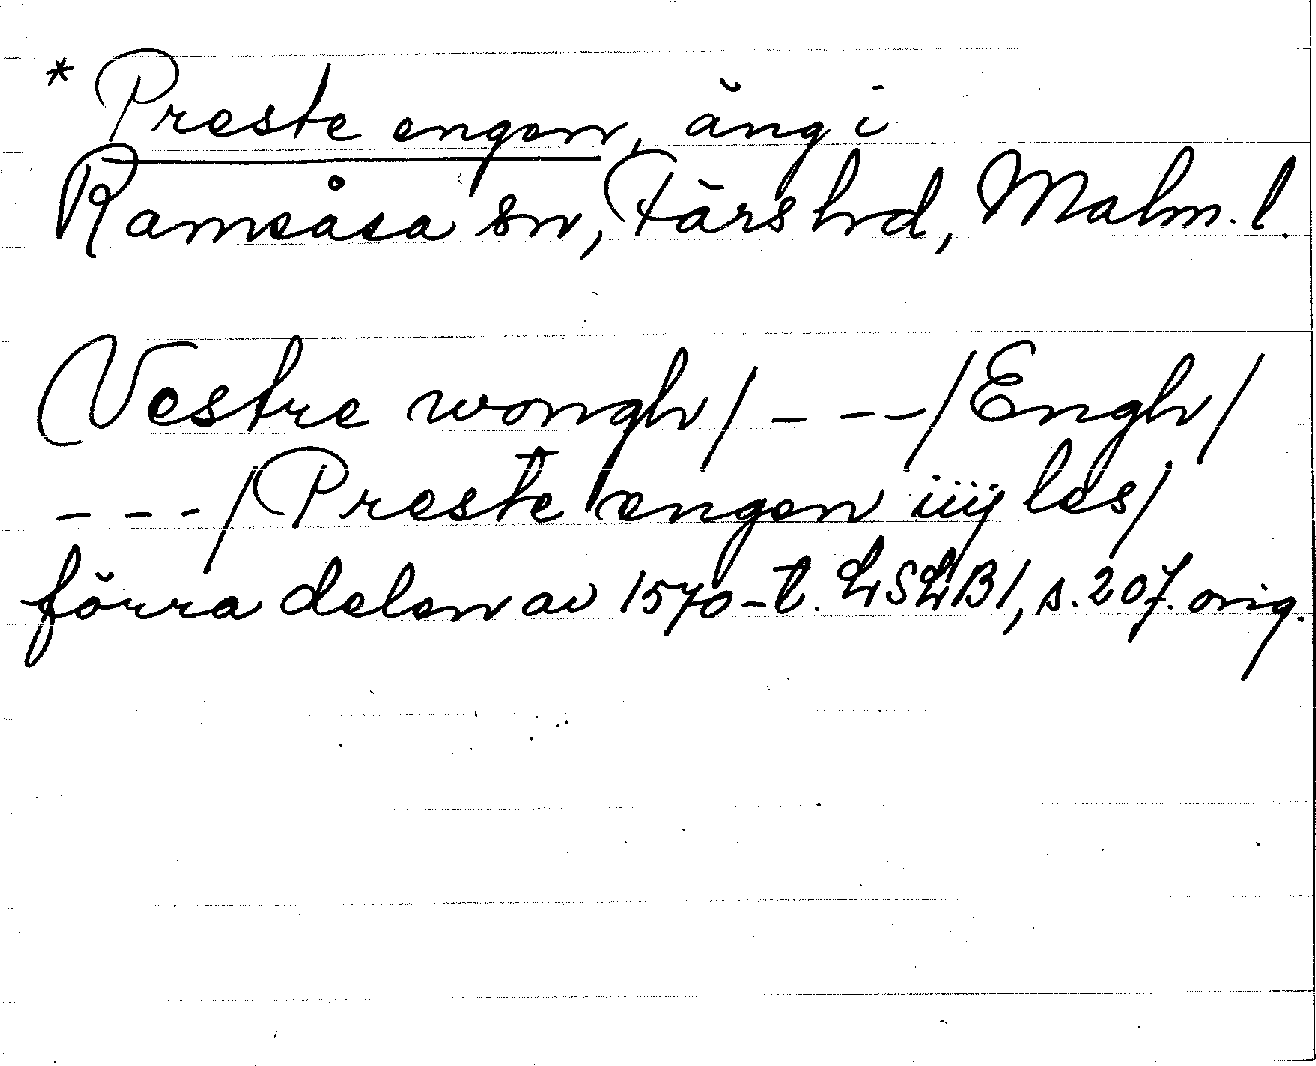 * Preste engen, äng i
Ramsåsa sn, Färs hd, Malm. l.
Vestre wongh / - - - / Engh /
- - - / Preste engen iiij les /
förra delen av 1570-t. LSLB 1, s. 207. orig.